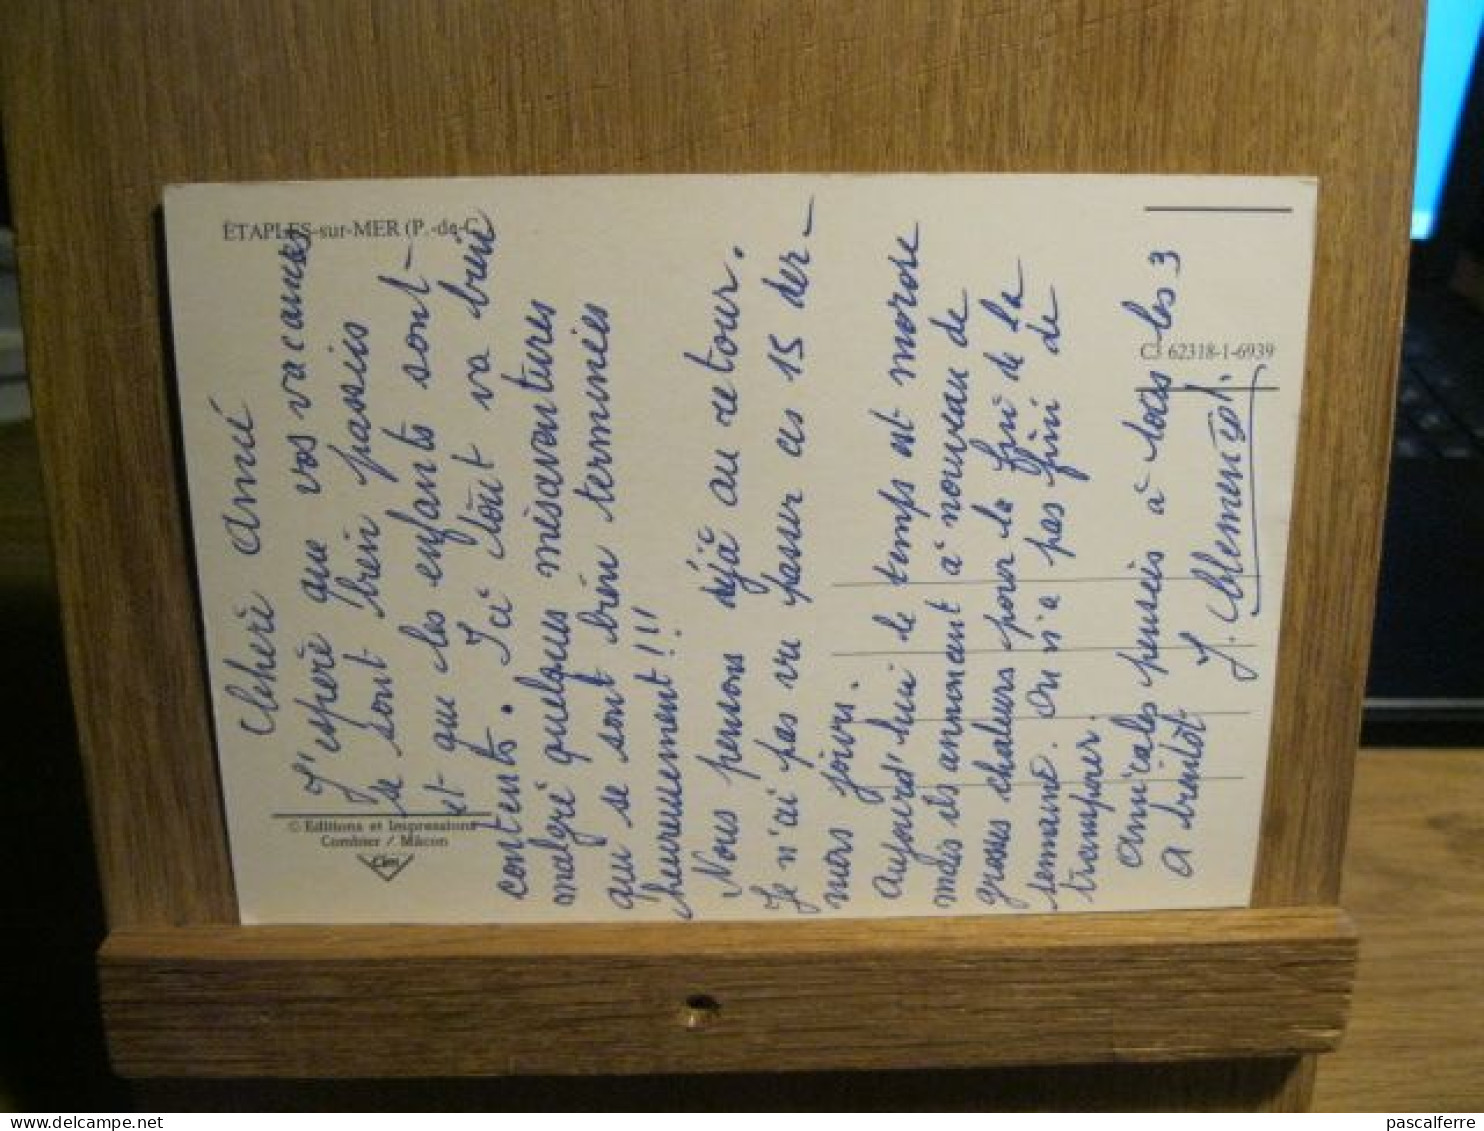 ÉTAPLES-sur-MER (P.-de-C
Cheré Amie
J'espère que vos vacances
se sont bien passées
et que les enfants sont-
contents. Ici tout va bien
malgré quelques mésaventures
qui se sont bien terminées
heureusement!!!
Nous pensons déjà au retour.
Je n'ai pas vu passer ces 15 der-
niers jours.
Aujourd'hui le temps est morose
mais ils annoncent à nouveau de
grosses chaleurs pour la fin de la
semaine. On n'a pas fini de
transpirer.
Amicales pensées à tous les 3
A bientôt
© Editions et Impressions
Combier / Mâcon
Cim
C3 62318-1-6939
pascalferre